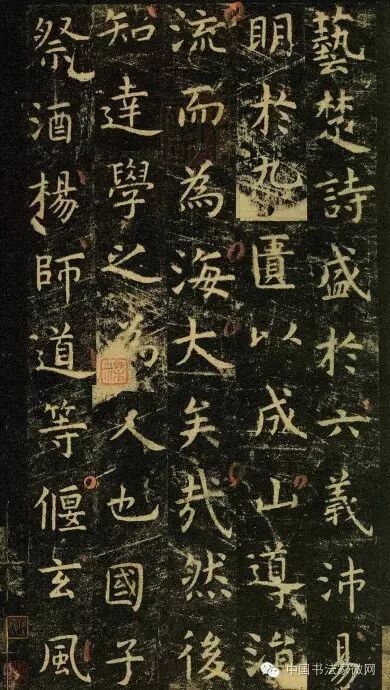 藝楚詩盛於六義沛
明於九匱以成山導涓
流而為海大矣哉然後
知達學之為人也國子
祭酒楊師道等偃玄風
中国书法家微网